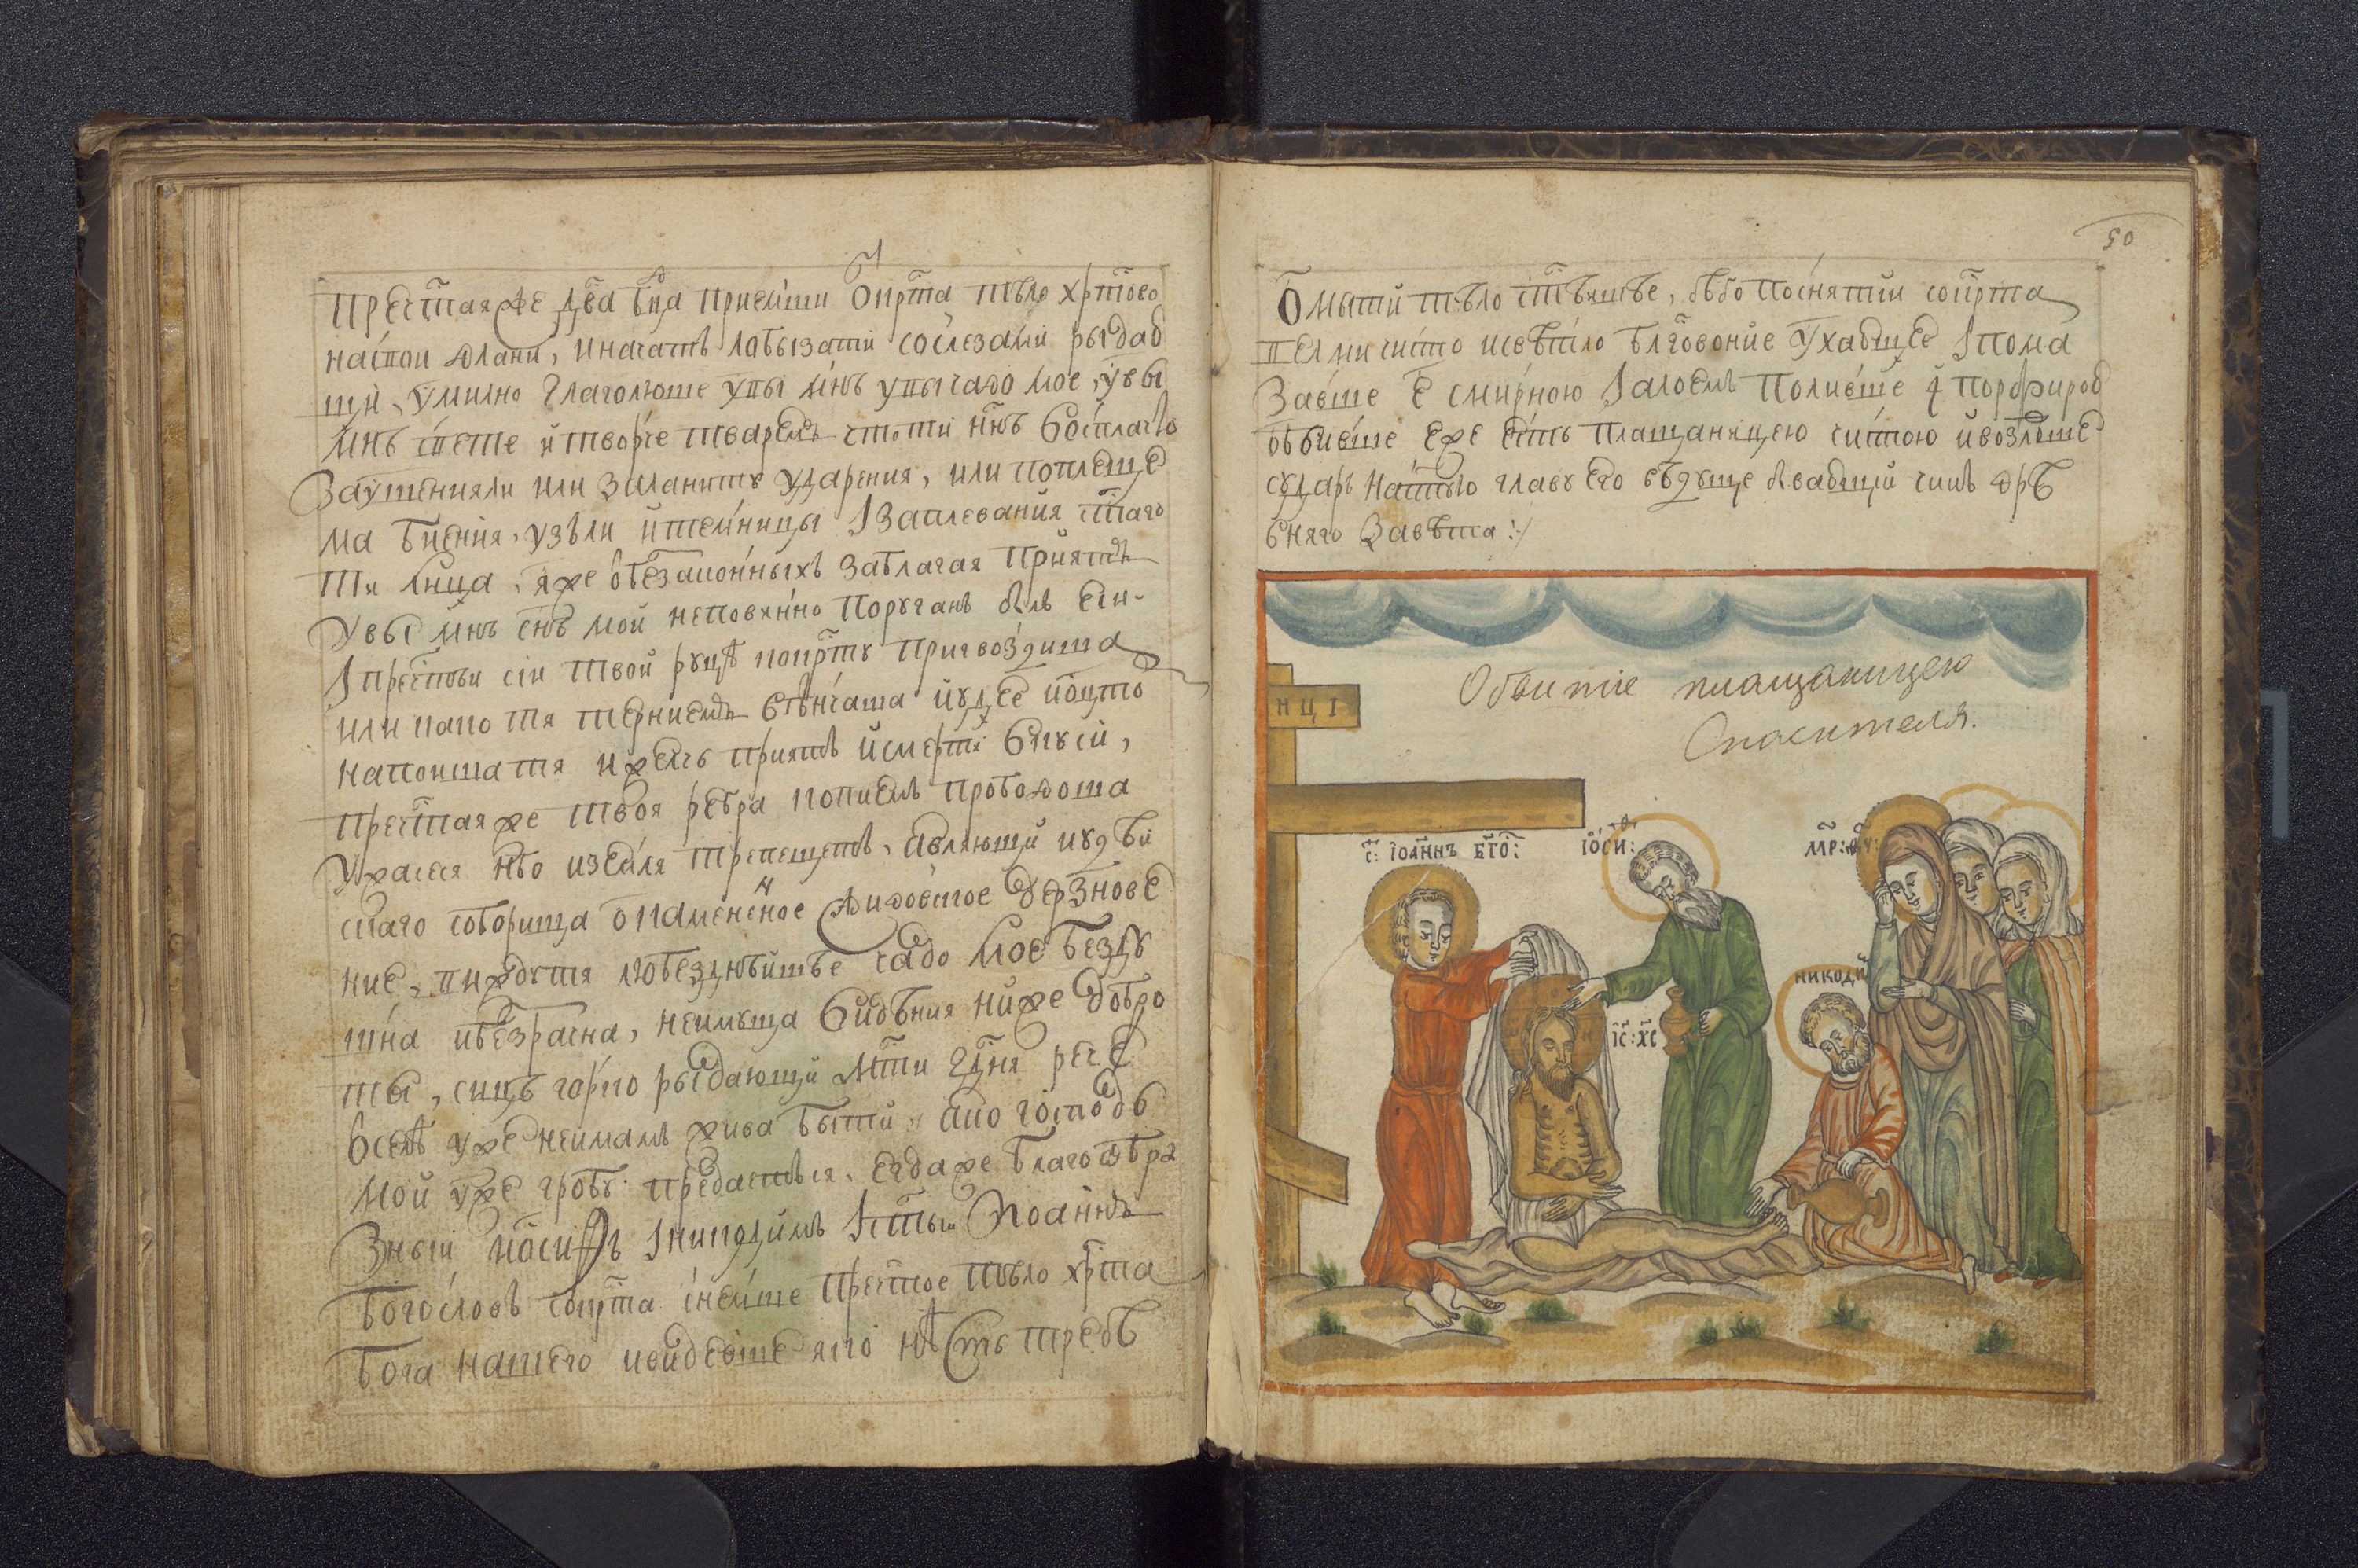 Пречтая же два бца приемши ѿ крта тѣло хртово
на свои длани, и начатъ лобызати со слезами рыдаю
щи, умилно глаголюще увы мнѣ увы чадо мое, увы
мнѣ свете и творче тваремъ что ти нн҃ѣ восплачю
заушенияли или за ланиту ударения, или по плеще
ма биения, узъ ли и темницы I заплевания стаго
ти лица, яже ѿ беззаконныхъ за благая приятъ
Увы мнѣ сн҃ѣ мой неповинно поруганъ былъ еси
I пречтыи сии твои руцѣ к кр҃ту пригвоздиша
или како тя терниемъ вѣнчаша иудее и оцто
напоиша тя и желчь приятъ и смерть вкуси,
Пречтая же твоя ребра копиемъ прободоша
Ужасеся нбо и земля трепещетъ, являющи иудѣй
скаго соборища окамененное жидовское дерзнове
ние, вижду тя возлюбленне чадо мое безду
шна и безрачна, не имуща видѣния ниже добро
ты, сице горко рыдающи мти гдня рече
всемъ уже не имамъ жива быти, ако господь
мой уже гробу предастъся, егда же благоѿбра
зный иосифъ I никодимъ I стыи Иоаннъ
богословъ со крта снемше пречтое тѣло хрта
бога нашего и видевше яко нѣсть требѣ
50
Омыти тѣло стѣишее, бѣ бо по снятии со крта
велми чисто и свѣтло блговоние ухающе I пома
завше е смирною I алоемъ поливше и порфирою
обвивше еже есть плащаницею чистою и возложше
сударь на стую главу его вѣдуще бывающи чинъ дрѣ
вняго завѣта
Обвитие плащаницею
Спасителя.
НЦI
с: Iоаннъ Бго:
Iосиф:
МР: ѲУ:
IС: ХС
никоди